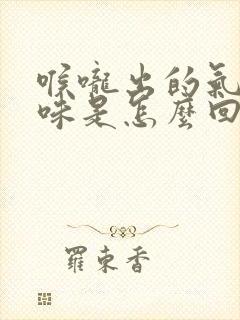 喉嚨出的氣
味是怎麼回
羅東香